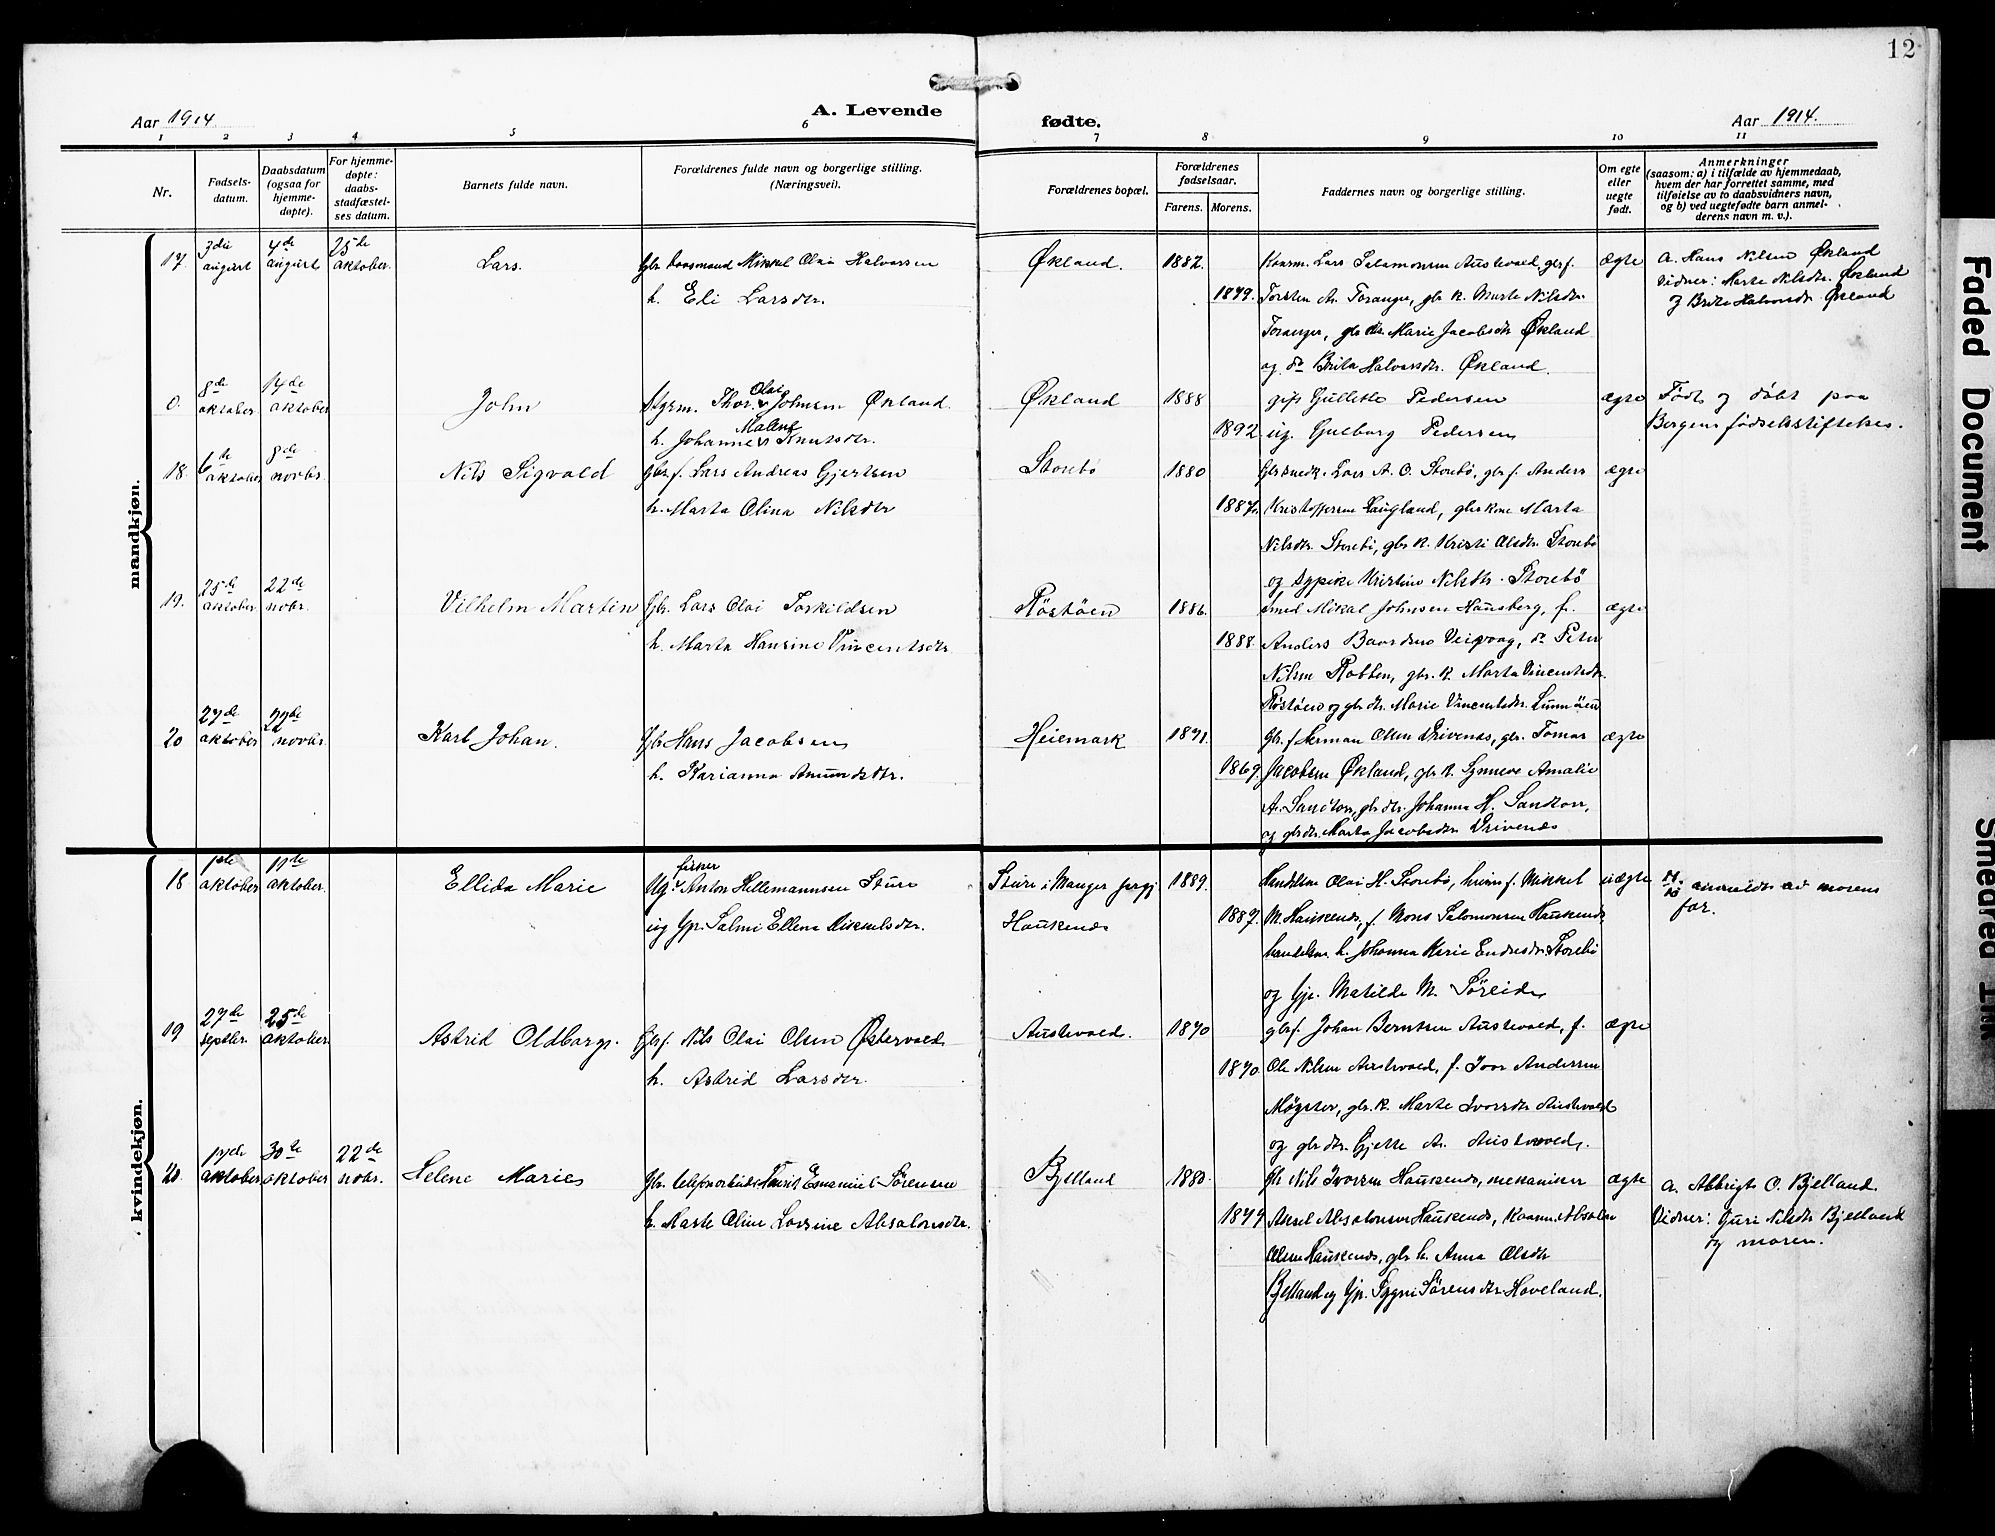 12
Aar 1914.
A. Levende
fødte.
Aar 1914.
1 2 3 4 5 6 7 8 9 10 11
Nr.
Fødsels-
datum.
Daabsdatum
(ogsaa for
hjemme-
døpte).
For hjemme-
døpte:
daabs-
stadfæstel-
ses datum.
Barnets fulde navn.
Forældrenes fulde navn og borgerlige stilling.
(Næringsvei).
Forældrenes bopæl.
Forældrenes
fødselsaar.
Farens. Morens.
Faddernes navn og borgerlige stilling.
Om egte
eller
uegte
født.
Anmerkninger
(saasom: a) i tilfælde av hjemmedaab,
hvem der har forrettet samme, med
tilføielse av to daabsvidners navn,
og b) ved uegtefødte barn anmel-
derens navn m. v.).
mandkjøn.
17. 3die august 4de august 25de oktober. Lars. Mikkel Olai Halvorsen
h. Eli Larsdtr.
Økland. 1882. 1879.
Lars Salamonsen Austevold, gbr f.
Torsten A. Toranger, gbr k. Marte Nilsdtr.
Toranger, gbr dtr. Marie Jacobsdtr Økland
og do Brita Halvorsdtr. Økland.
ægte
a. Hans Nilsen Økland
Vidner: Marte Nilsdtr. Økland
og Brita Halvorsdtr Økland
0. 8de oktober 14de oktober John Styrm. Thor Olai Johnsen Økland.
h. Johanne Malene Knutsdtr.
Økland 1888 1892
gift Gulleik Pedersen
ug. Gulborg Pedersen
ægte
Født og døbt paa
Bergens fødselsstiftelse.
18. 6te oktober 8de novbr. Nils Sigvald gbr f. Lars Andreas Gjertsen
h. Marta Olina Nilsdtr
Storebø 1880 1887.
Lars A. O. Storebø, gbr f. Anders
Kristoffersen Haugland, gbr kone Marta
Nilsdtr. Storebø, gbr k. Kristi Olsdtr. Storebø
og pike Kristine Nilsdtr. Storebø
ægte
19. 25de oktober 22de novbr. Vilhelm Martin Gbr. Lars Olai Torkildsen
h. Marta Hansine Vincentsdtr
Røstøen 1886. 1888.
smed Mikal Johnsen Hausberg, f.
Anders Baardsen Veivaag, do Peter
Nilsen Robben, gbr. k. Marta Vincentsdtr.
Røstøen og gbr dtr. Marie Vincentsdtr.
ægte
20 27de oktober 22de novbr. Karl Johan. Gbr Hans Jacobsen
h. Karianna Amundsdtr.
Heiemark 1871. 1869.
gbr. f Herman Olsen Drivenes, gbr. Tomas
Jacobsen Økland, gbr k. Synneve Amalie
A. Sandtorv, gbr dtr. Johanna H. Sandtorv,
og gbr dtr. Marta Jacobsdtr Drivenes
ægte
kvindekjøn.
18 1ste oktober 11te oktober. Ellida Marie Ug. fisker Anton Hellemannsen Sture
ug Gp. Salmi Ellena Mikkelsdtr.
Sture i Manger prgj
Haukenes
1889. 1887.
Handelsm Olai H. Storebø, f. Mikkel
M Haukenes, f. Mons Salomonsen Haukenes
handelsm. h. Johanna Marie Endresdtr. Storebø
og Gp. Matilde M. Søreide
uægte
anmeldt av morens
far.
19 27de septbr. 25de oktober Astrid Oldborg. Gbr f. Nils Olai Olsen Østervold
h. Astrid Larsdtr.
Austevold. 1870 1870.
gbr f. Johan Berntsen Austevold, f.
Ole Nilsen Austevold, f. Ivar Andersen
Møgster, gbr. k. Marte Ivarsdtr Austevold
og gbr dtr. Gjertte A. Austevold.
ægte
20. oktober 30te oktober 22de novbr. Helene Marie Emanuel Sørensen
h. Marte Oline Lovsine Absalonsdtr.
Bjelland 1883. 1879
gbr Nils Ivarsen Haukenes, mekaniker
Aksel Absalonsen Haukenes, Absalon
Olsen Haukenes, gbr h. Anna Olsdtr
Bjelland og Gp. Sygni Sørensdtr Haveland.
ægte
a. Albrigt O. Bjelland.
Vidner: Guri Nilsdtr Bjelland
og moren.
Faded Document
Smeared Ink